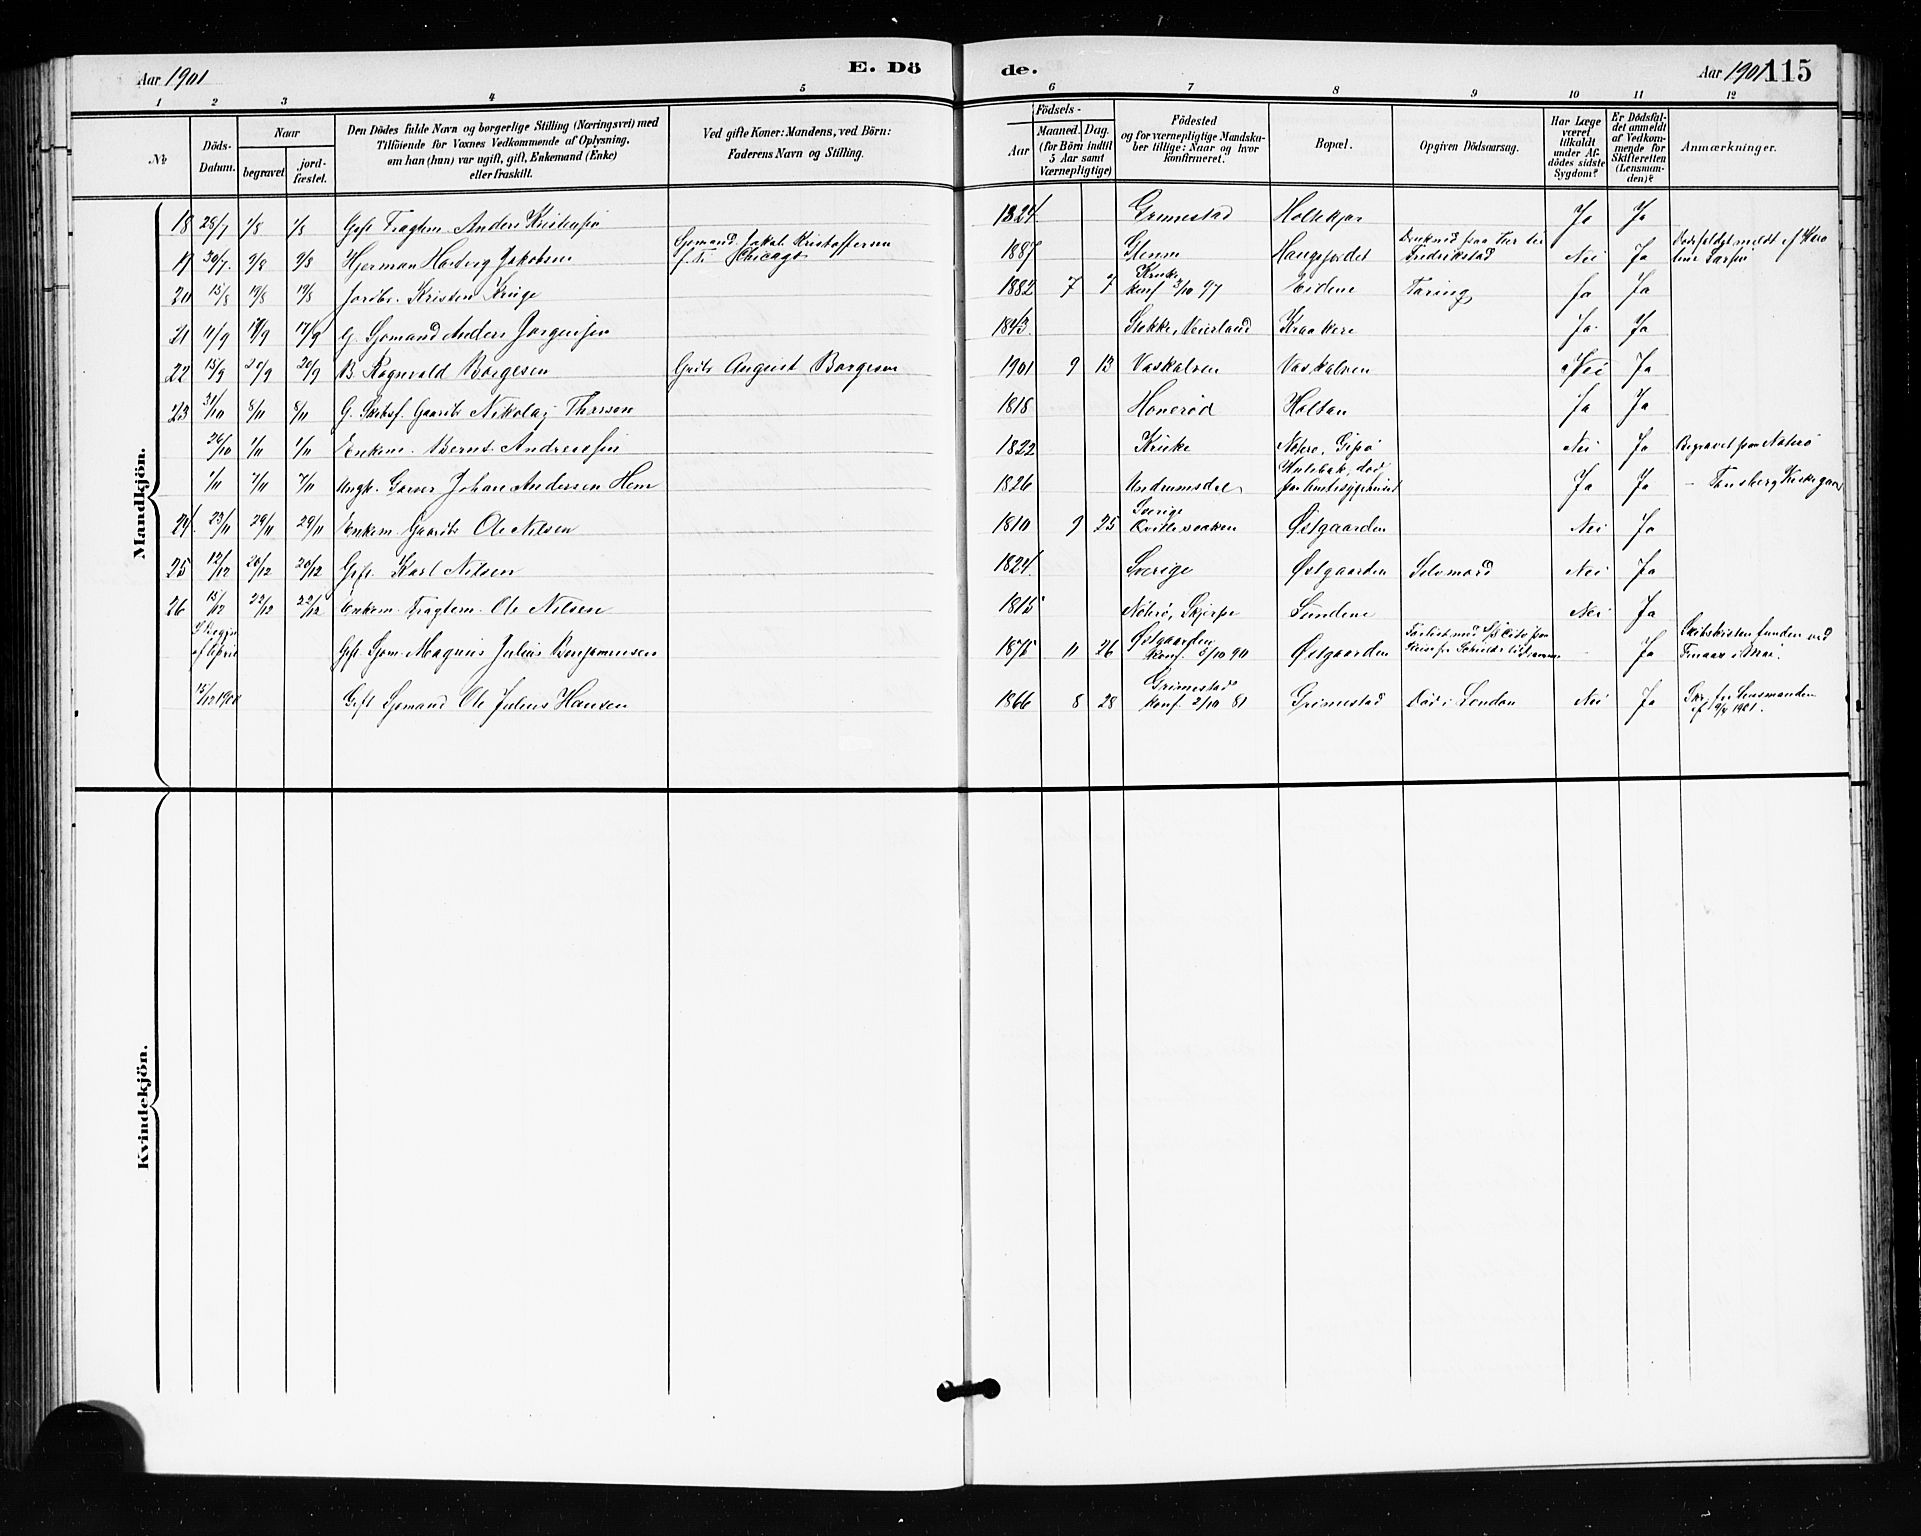 Aar 1901
E. Dö
de.
Aar 1901
115
1 2 3 4 5 6 7 8 9 10 11 12
№
Döds-
Datum.
Naar
begravet
jord-
fæstet.
Den Dödes fulde Navn og borgerlige Stilling (Næringsvei) med
Tilföiende for Voxnes Vedkommende af Oplysning,
om han (hun) var ugift, gift, Enkemand (Enke)
eller fraskilt.
Ved gifte Koner: Mandens, ved Börn:
Faderens Navn og Stilling.
Födsels-
Aar
Maaned. Dag.
(for Börn indtil
5 Aar samt
Værnepligtige)
Födested
og for værnepligtige Mandska-
ber tillige: Naar og hvor
konfirmeret.
Bopæl.
Opgiven Dödsaarsag.
Har Læge
været
tilkaldt
under Af-
dödes sidste
Sygdom?
Er Dödsfal-
det anmeldt
af Vedkom-
mende for
Skifteretten
(Lensman-
den)?
Anmærkninger.
Mandkjön.
18 1/8 1/8 Gift Fragtem. Anders Kristensen 1824 Grimestad Holtekjær Ja Ja
19 30/7 2/8 2/8 Hjerman Hartvig Jakobsen Sømand Jakob Kristoffersen Chicago 1887 Glemm Haugsfjordet Fredrikstad Nei Ja
20 15/8 19/8 19/8 Jordbr. Kristen Kruge 1882 7 7 Kruke konf 3/10 97 Eidene Tæring Ja Ja
21 11/9 17/9 17/9 G. Sømand Anders Jørgensen 1843 Stokke, Veierland Kraakere Ja Ja
22 15/9 20/9 20/9 B. Ragnvald Borgesen Grdbr August Borgesen 1901 9 13 Vaskalven Vaskalven Nei Ja
23 31/10 8/11 8/11 G. Skibsf. Gaardbr Nikolaj Thresen 1818 Honerød Holtan Ja Ja
26/10 1/11 1/11 Enkem. Bernt Andreassen 1822 Kruke Nøterø, Gipø Nei Ja Begravet paa Nøterø
1/11 7/11 7/11 Ungk. Garver Johan Andersen Hem 1826 Undrumsdal Hulebak, død paa Amtssygehuset Ja Ja – Tønsberg Kirkegaard
24 23/11 29/11 29/11 Enkem. Gaardbr Ole Nilsen 1810 9 25 Sverige Østgaarden Nei Ja
25 12/12 20/12 20/12 Gift Karl Nilsen 1824 Sverige Østgaarden Selvmord Nei Ja
26 15/12 22/12 22/12 Enkem. Fragtem. Ole Nilsen 1815 Nøterø, Skjerpe Sundene Nei Ja
I Begyn.
af April Gift Søm. Magnus Julius Benjaminsen 1875 11 26 Østgaarden konf. 5/10 90 Østgaarden Forlist med S/S – Ja Skibskisten funden ved
15/12 1900 Gift Sømand Ole Julius Hansen 1866 8 28 Grimestad konf 2/10 81 Grimestad Død i London Nei Ja Lensmanden
Kvindekjön.